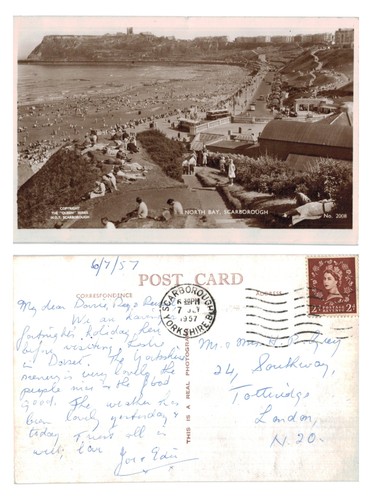 COPYRIGHT
THE "QUEEN" SERIES
W.D.T. SCARBOROUGH
NORTH BAY, SCARBOROUGH
No. 2008
6/7/57
POST CARD
CORRESPONDENCE
THIS IS A REAL PHOTOGRAPH
SCARBOROUGH
YORKSHIRE
6 PM
7 JY
1957
2d 2d
My dear
We are having
fortnight's holiday here
visiting
in Dorset. The Yorkshire
scenery is very lovely, the
people nice & the food
good. The weather has
been lovely yesterday &
today. Trust all is
well, love
Joe & Edie
Mr. & Mrs.
24, Southway,
Totteridge
London,
N. 20.